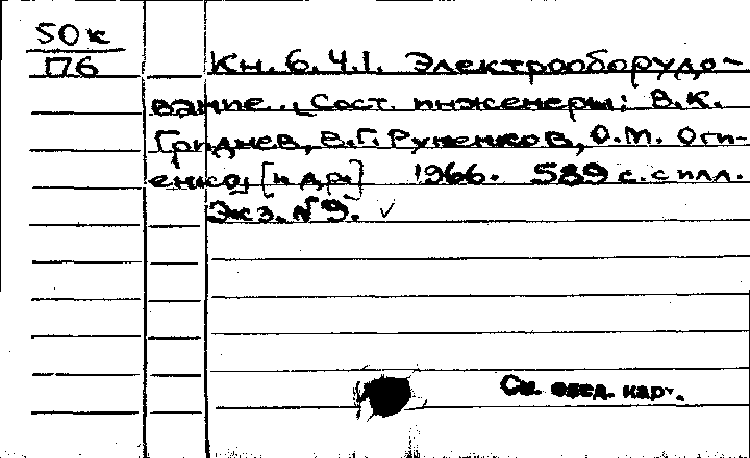 50к
П6
Кн. 6. Ч.1. Электрооборудо-
вание. [Сост. инженеры: В.К.
Гриднев, В.Г. Руненков, О.М. Оги-
енко, [и др.] 1966. 589 с. с илл.
Экз. №9. ✓
См. след. карт.